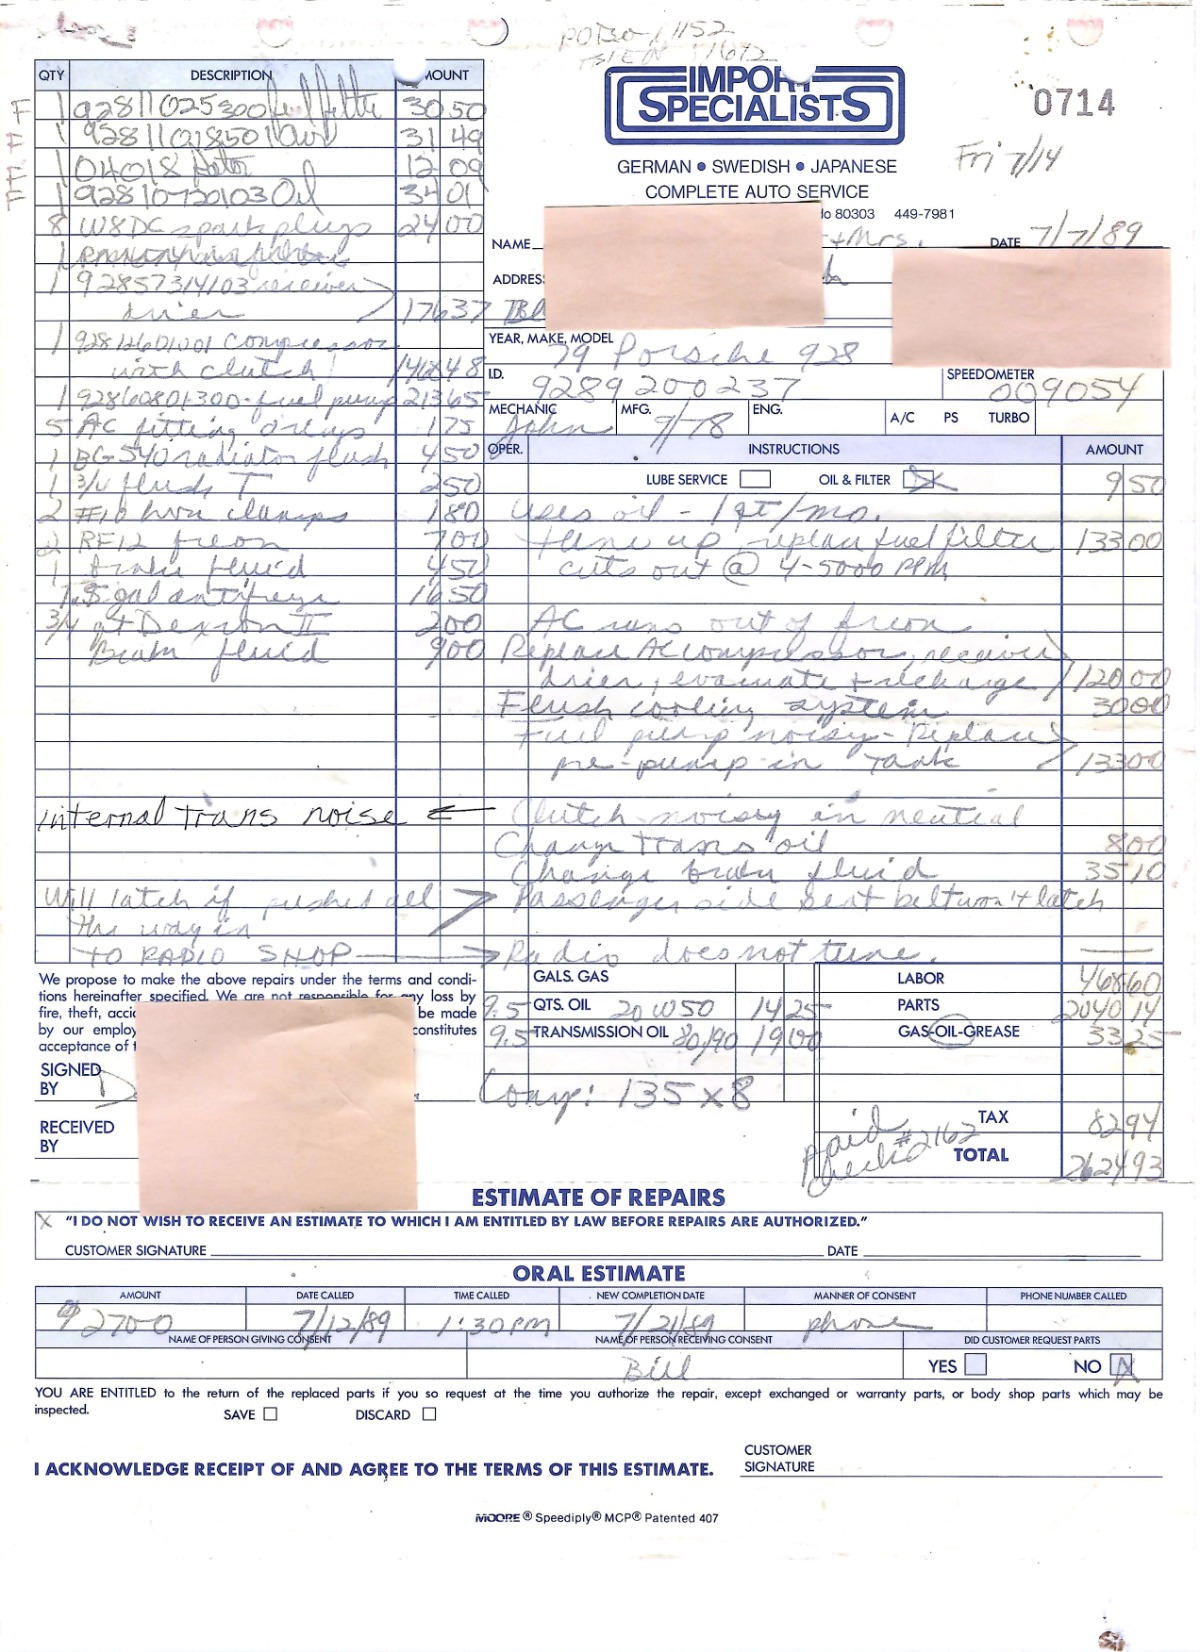 IMPORT
SPECIALISTS
0714
GERMAN • SWEDISH • JAPANESE
COMPLETE AUTO SERVICE
Fri 7/14
80303 449-7981
QTY DESCRIPTION AMOUNT
F 1 92811025300 fuel filter 30 50
F 1 31 49
F 1 04018 12 09
F 1 92810720103 Oil 34 01
8 W8DC spark plugs 24 00
1 92857314103 receiver
drier 176 37
1 92812601001 compressor
with clutch 1468 48
1 92860801300 - fuel pump 213 65
5 AC fitting orings 1 75
1 BG540 radiator flush 4 50
1 3/4 flush T 2 50
2 #10 hose clamps 1 80
2 RF12 freon 7 00
1 brake fluid 4 50
1.5 gal antifreeze 16 50
3/4 qt Dexron II 2 00
Brake fluid 9 00
NAME + Mrs. DATE 7/7/89
ADDRESS
YEAR, MAKE, MODEL 79 Porsche 928
I.D. 9289200237 SPEEDOMETER 009054
MECHANIC John MFG. 7/78 ENG. A/C PS TURBO
OPER. INSTRUCTIONS AMOUNT
LUBE SERVICE OIL & FILTER X 9 50
Uses oil - 1 qt/mo.
tune up, replace fuel filter 133 00
cuts out @ 4-5000 RPM
AC runs out of freon
Replace AC compressor, receiver
drier, evacuate + recharge 120 00
Flush cooling system 30 00
Fuel pump noisy - Replace
pre-pump in tank 133 00
internal trans noise ← Clutch noisy in neutral
Change trans oil 8 00
Change brake fluid 35 10
Will latch if pushed all → Passenger side seat belt won't latch
the way in
TO RADIO SHOP → Radio does not tune. —
We propose to make the above repairs under the terms and condi-
tions hereinafter specified. We are not responsible for any loss by
fire, theft, be made
by our employ constitutes
acceptance of
SIGNED
BY
RECEIVED
BY
GALS. GAS
9.5 QTS. OIL 20W50 14 25
9.5 TRANSMISSION OIL 80/90 19 00
Comp: 135 x 8
LABOR 468 60
PARTS 2040 14
GAS-OIL-GREASE 33 25
TAX 82 94
TOTAL 2624 93
Paid
Check #2162
ESTIMATE OF REPAIRS
X "I DO NOT WISH TO RECEIVE AN ESTIMATE TO WHICH I AM ENTITLED BY LAW BEFORE REPAIRS ARE AUTHORIZED."
CUSTOMER SIGNATURE DATE
ORAL ESTIMATE
AMOUNT DATE CALLED TIME CALLED NEW COMPLETION DATE MANNER OF CONSENT PHONE NUMBER CALLED
$2700 7/12/89 1:30PM 7/21/89 phone
NAME OF PERSON GIVING CONSENT NAME OF PERSON RECEIVING CONSENT DID CUSTOMER REQUEST PARTS
Bill YES NO X
YOU ARE ENTITLED to the return of the replaced parts if you so request at the time you authorize the repair, except exchanged or warranty parts, or body shop parts which may be
inspected. SAVE DISCARD
I ACKNOWLEDGE RECEIPT OF AND AGREE TO THE TERMS OF THIS ESTIMATE.
CUSTOMER
SIGNATURE
MOORE® Speediply® MCP® Patented 407